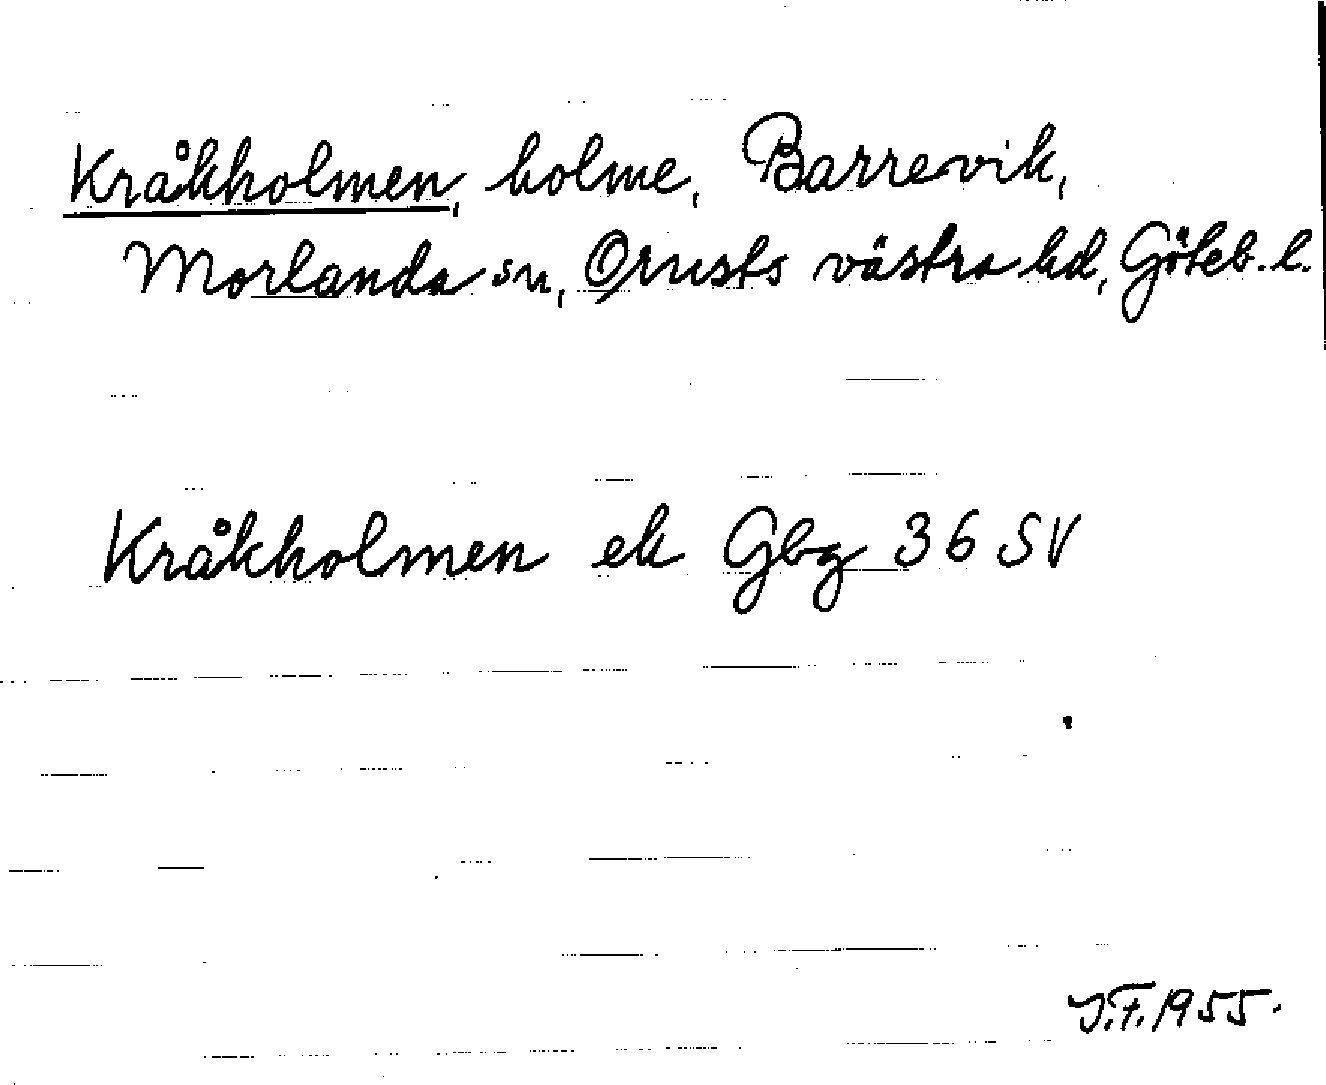 Kråkholmen, holme, Barrevik,
Morlanda sn, Orusts västra hd, Göteb. l.
Kråkholmen ek Gbg 36 SV
J.F. 1955.